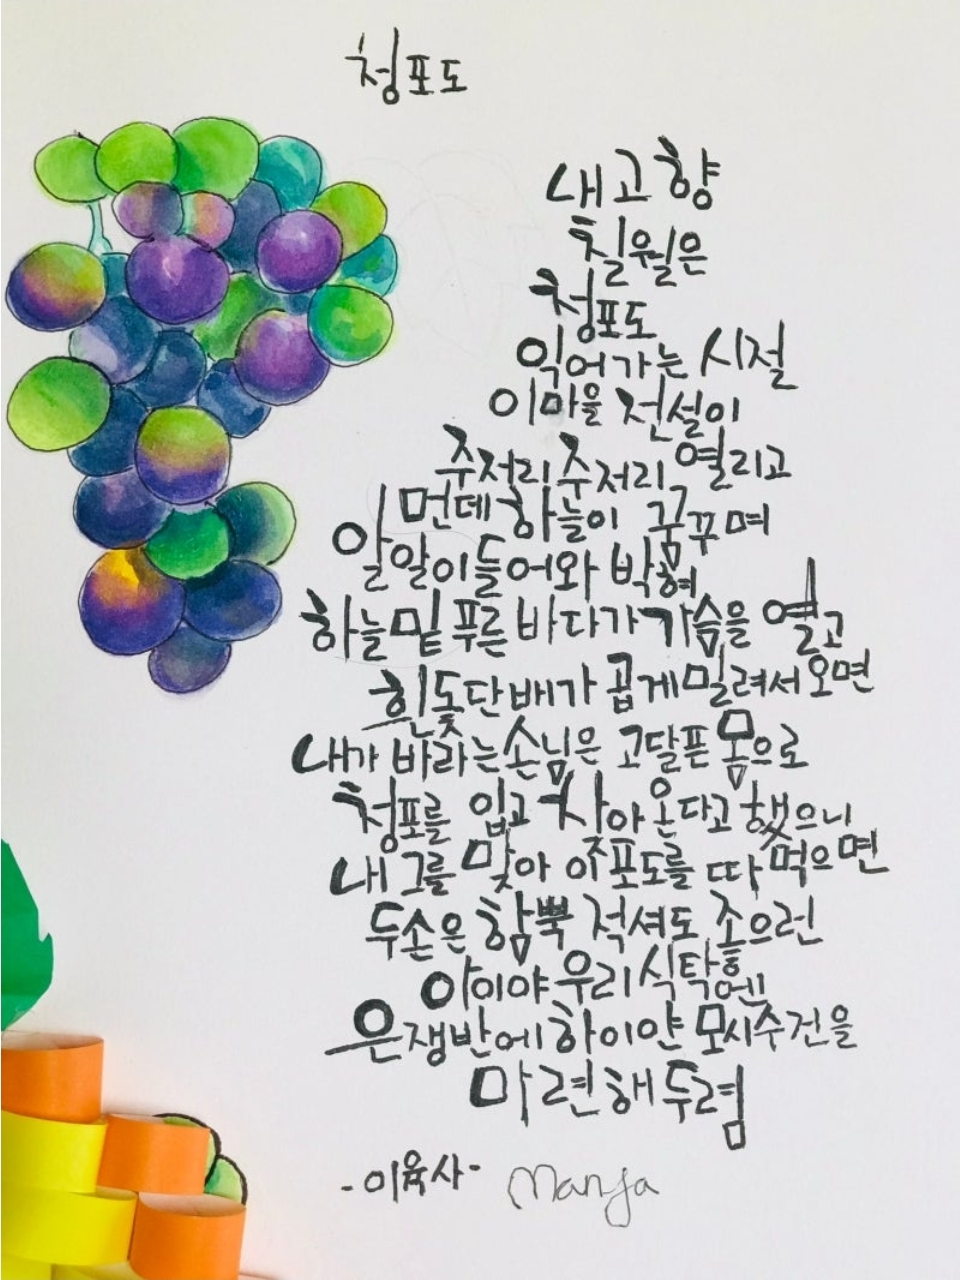 청포도
내 고향
칠월은
청포도
익어가는 시절
이마을 전설이
주저리 주저리 열리고
먼데 하늘이 꿈꾸며
알알이 들어와 박혀
하늘밑 푸른 바다가 가슴을 열고
흰돛단배가 곱게 밀려서 오면
내가 바라는 손님은 고달픈 몸으로
청포를 입고 찾아온다고 했으니
내 그를 맞아 이 포도를 따 먹으면
두손은 함뿍 적셔도 좋으련
아이야 우리 식탁엔
은쟁반에 하이얀 모시수건을
마련해 두렴
-이육사- Manja